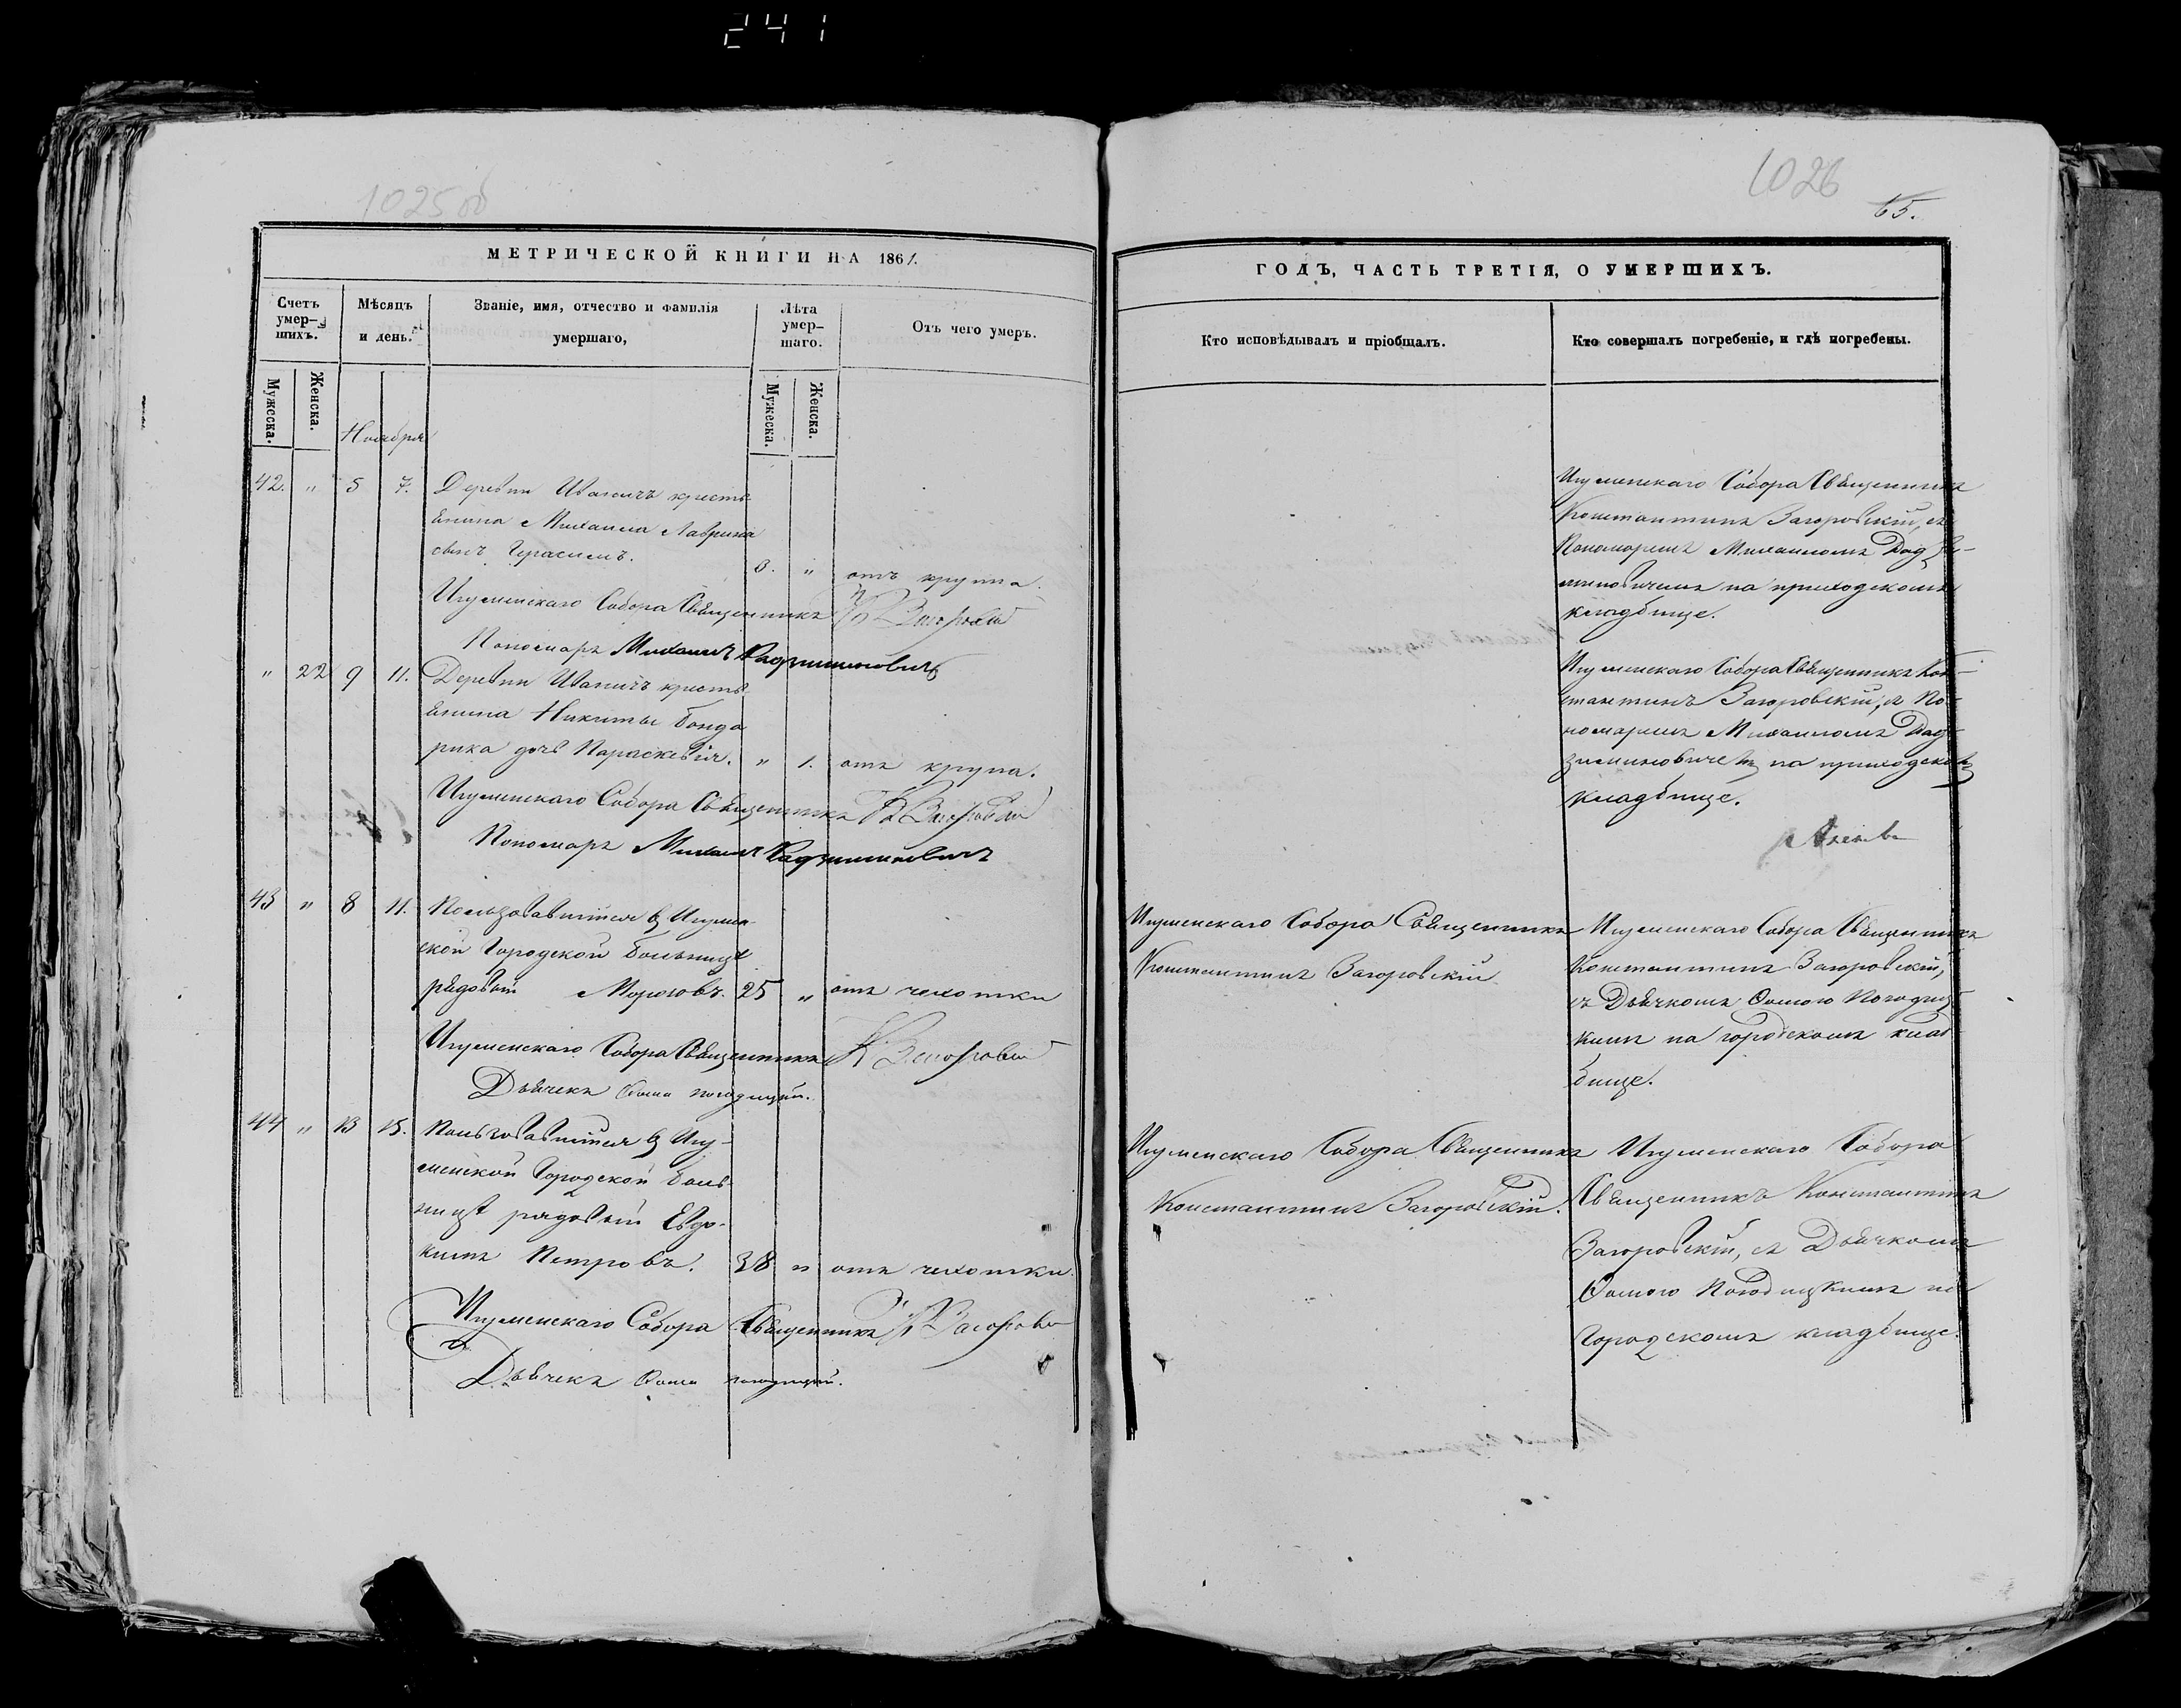 241
1025об
1026
65.
МЕТРИЧЕСКОЙ КНИГИ НА 1861.
ГОДЪ, ЧАСТЬ ТРЕТІЯ, О УМЕРШИХЪ.
Счетъ умер-шихъ.
Мѣсяцъ и день.
Званіе, имя, отчество и фамилія умершаго,
Лѣта умер-шаго.
Отъ чего умеръ.
Кто исповѣдывалъ и пріобщалъ.
Кто совершалъ погребеніе, и гдѣ погребены.
Мужеска.
Женска.
Мужеска.
Женска.
Ноября
42. " 5 7. Деревни Иваничъ кресть
янина Михаила
сынъ Герасимъ. 3. " отъ крупа.
Игуменскаго Собора Священникъ К Загоровскій
Пономаръ Михаилъ Радзиминовичъ
Игуменскаго Собора Священникъ
Константинъ Загоровскій, съ
Пономаремъ Михаиломъ Радзи-
миновичемъ на приходскомъ
кладбище.
" 22 9 11. Деревни Иваничъ кресть
янина Никиты Бонда
рика дочь Параскевія. " 1. отъ крупа.
Игуменскаго Собора Священникъ К Загоровскій
Пономаръ Михаилъ Радзиминовичъ
Игуменскаго Собора Священникъ Кон-
стантинъ Загоровскій, съ По-
номаремъ Михаиломъ Рад-
зиминовичемъ на приходскомъ
кладбище.
43 " 8 11. Пользовавшійся въ Игумен-
ской Городской больницѣ
рядовой Морозовъ. 25 " отъ чахотки
Игуменскаго Собора Священникъ К Загоровскій
Дьячекъ Фома Погодицкій.
Игуменскаго Собора Священникъ
Константинъ Загоровскій
Игуменскаго Собора Священникъ
Константинъ Загоровскій,
съ Дьячкомъ Фомою Погодиц
кимъ на городскомъ клад
бище.
44 " 13 15. Пользовавшійся въ Игу-
менской Городской боль
ницѣ рядовой Евдо-
кимъ Петровъ. 38 " отъ чахотки.
Игуменскаго Собора Священникъ К Загоровскій
Дьячекъ Фома Погодицкій.
Игуменскаго Собора Священникъ
Константинъ Загоровскій.
Игуменскаго Собора
Священникъ Константинъ
Загоровскій, съ Дьячкомъ
Фомою Погодицкимъ на
Городскомъ кладбище.